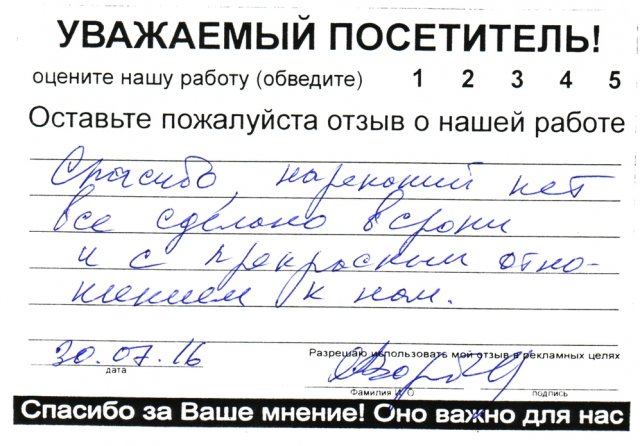 УВАЖАЕМЫЙ ПОСЕТИТЕЛЬ!
оцените нашу работу (обведите) 1 2 3 4 5
Оставьте пожалуйста отзыв о нашей работе
Спасибо, нареканий нет
все сделано в сроки
и с прекрасным отно-
шением к нам.
30.07.16
Разрешаю использовать мой отзыв в рекламных целях
дата
Фамилия И.О подпись
Спасибо за Ваше мнение! Оно важно для нас